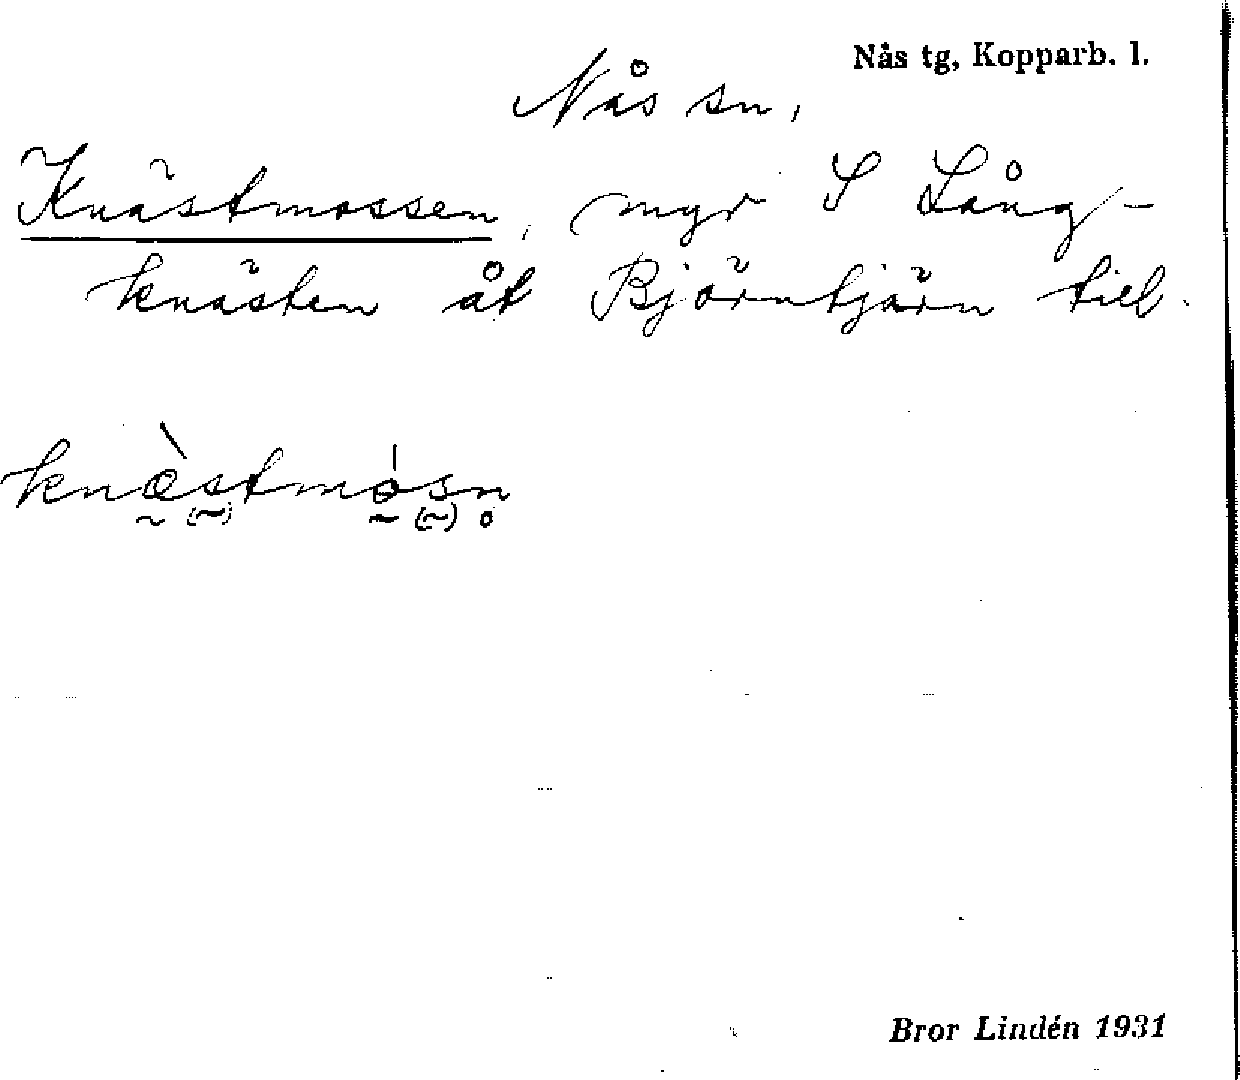 Nås tg, Kopparb. l.
Nås sn,
Knästmossen, myr S Lång-
knästen åt Björntjärn till.
knæ̀stmòsn
Bror Lindén 1931